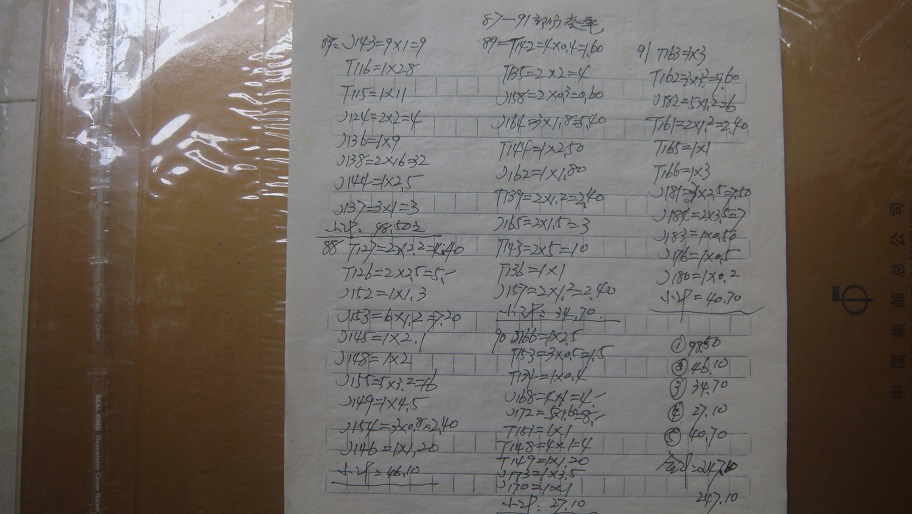 87—91部分
87=J143=9×1=9
T116=1×28
T115=1×11
J124=2×2=4
J136=1×9
J138=2×16=32
J144=1×2.5
J137=3×1=3
小计: 98.50
88 T127=2×2.2=4.40
T126=2×2.5=5
J152=1×1.3
J153=6×1.2=7.20
J145=1×2.1
J148=1×2
J155=5×3.2=16
J149=1×4.5
J154=3×0.8=2.40
J146=1×1.20
小计=46.10
89=T142=4×0.4=1.60
T135=2×2=4
J158=2×0.3=0.60
J164=3×1.8=5.40
T144=1×2.50
J162=1×1.80
T139=2×1.2=2.40
J165=2×1.5=3
T143=2×5=10
T136=1×1
J157=2×1.2=2.40
小计: 34.70
90 J166=1×2.5
T153=3×0.5=1.5
T134=1×0.4
J168=4×1=4
J172=5×1.60=8
T151=1×1
T148=4×1=4
T149=1×1.20
J173=1×3.5
J170=1×1
小计: 27.10
91 T163=1×3
T162=3×3.2=9.60
J182=5×1.2=6
T161=2×1.2=2.40
T165=1×1
T166=1×3
J181=3×2.5=7.50
J184=2×3.5=7
J183=1×0.50
J176=1×0.5
J180=1×0.2
小计=40.70
① 98.50
② 46.10
③ 34.70
④ 27.10
⑤ 40.70
合计=247.10
247.10
中国集邮总公司